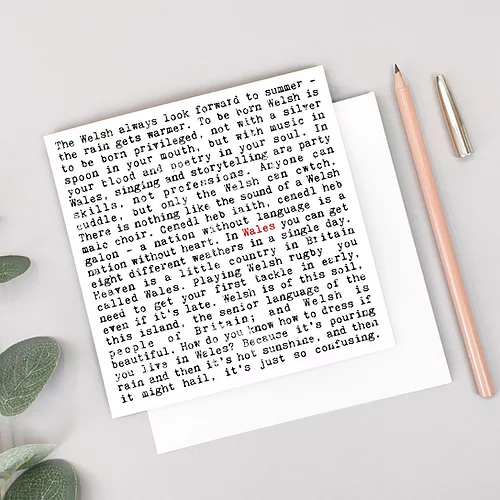 The Welsh always look forward to summer -
the rain gets warmer. To be born Welsh is
to be born privileged, not with a silver
spoon in your mouth, but with music in
your blood and poetry in your soul. In
Wales, singing and storytelling are party
skills, not professions. Anyone can
cuddle, but only the Welsh can cwtch.
There is nothing like the sound of a Welsh
male choir. Cenedl heb iaith, cenedl heb
galon - a nation without language is a
nation without heart. In Wales you can get
eight different weathers in a single day.
Heaven is a little country in Britain
called Wales. Playing Welsh rugby you
need to get your first tackle in early,
even if it's late. Welsh is of this soil,
this island, the senior language of the
people of Britain; and Welsh is
beautiful. How do you know how to dress if
you live in Wales? Because it's pouring
rain and then it's hot sunshine, and then
it might hail, it's just so confusing.